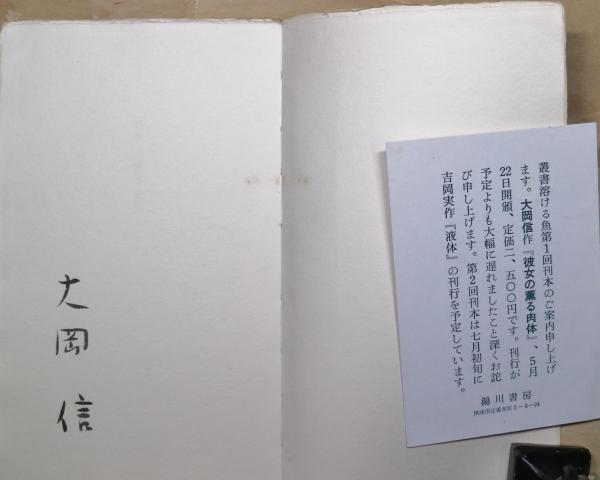 大岡信
叢書溶ける魚第1回刊本のご案内申し上げ
ます。大岡信作『彼女の薫る肉体』、5月
22日開頒、定価二、五〇〇円です。刊行が
予定よりも大幅に遅れましたこと深くお詫
び申し上げます。第2回刊本は七月初旬に
吉岡実作『液体』の刊行を予定しています。
湯川書房